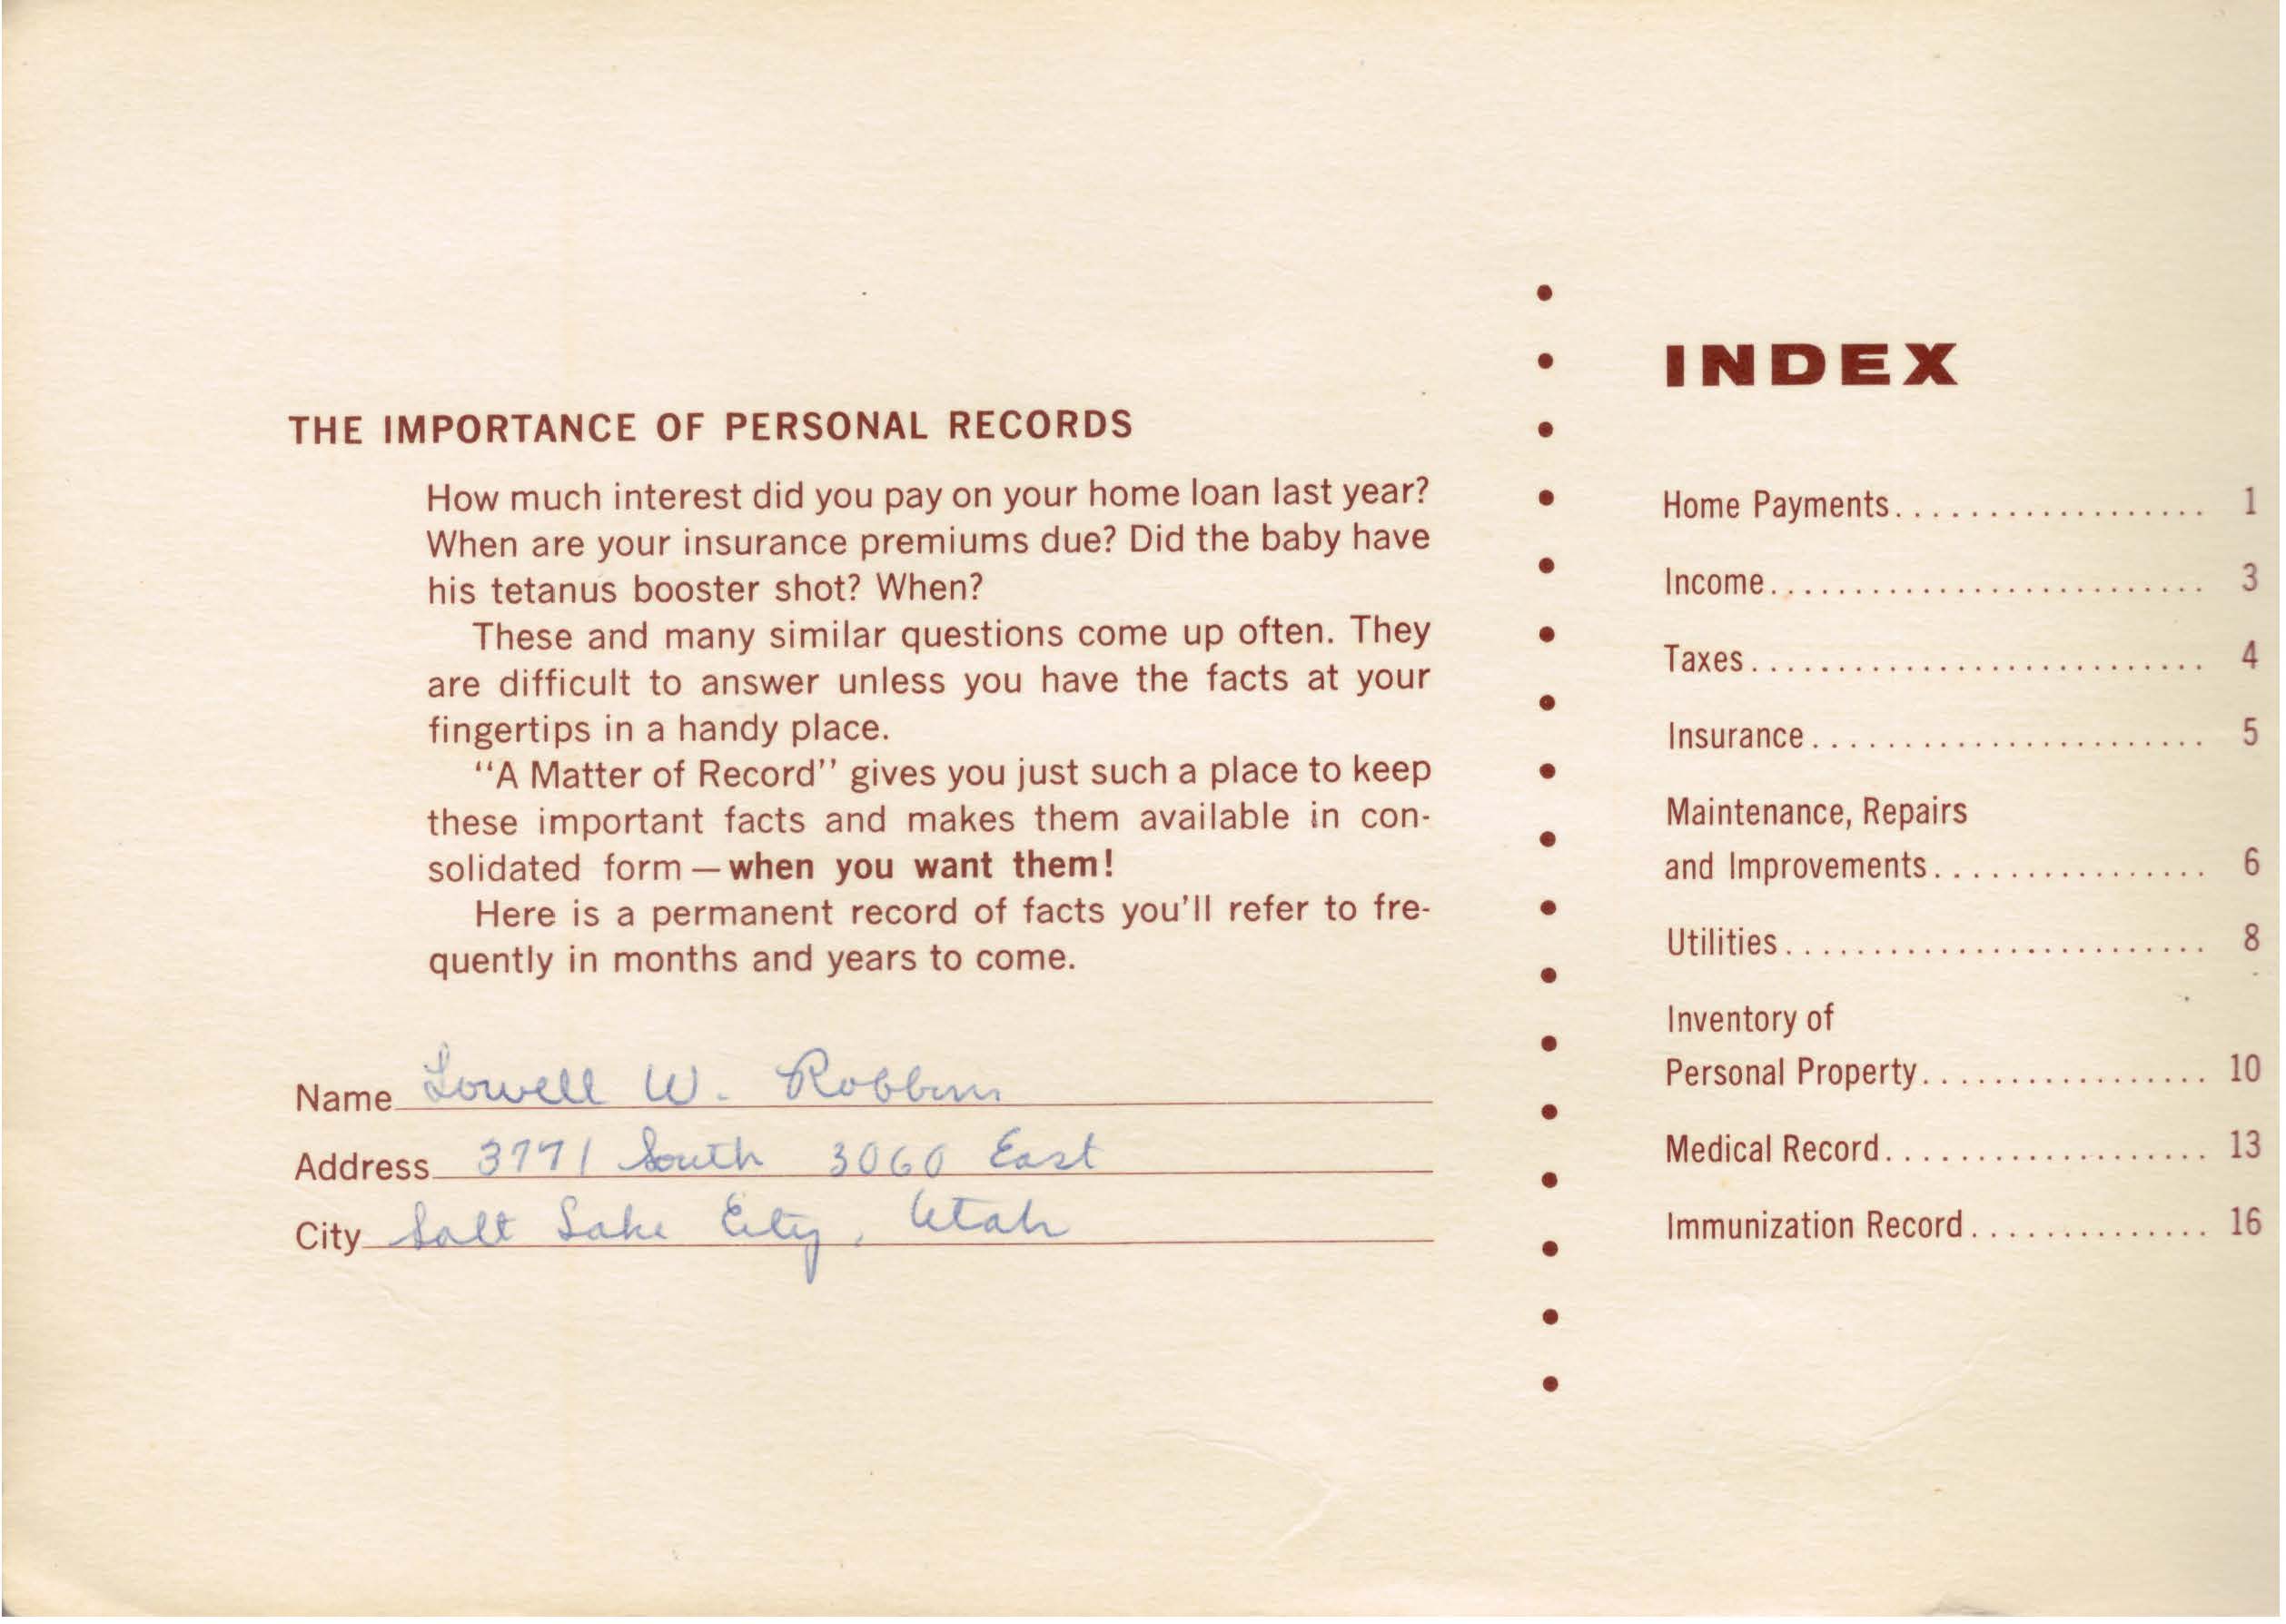 THE IMPORTANCE OF PERSONAL RECORDS
How much interest did you pay on your home loan last year?
When are your insurance premiums due? Did the baby have
his tetanus booster shot? When?
These and many similar questions come up often. They
are difficult to answer unless you have the facts at your
fingertips in a handy place.
"A Matter of Record" gives you just such a place to keep
these important facts and makes them available in con-
solidated form — when you want them!
Here is a permanent record of facts you'll refer to fre-
quently in months and years to come.
Name Lowell W. Robbins
Address 3771 South 3060 East
City Salt Lake City, Utah
INDEX
Home Payments.................. 1
Income.......................... 3
Taxes........................... 4
Insurance....................... 5
Maintenance, Repairs
and Improvements................ 6
Utilities......................... 8
Inventory of
Personal Property................. 10
Medical Record................... 13
Immunization Record.............. 16